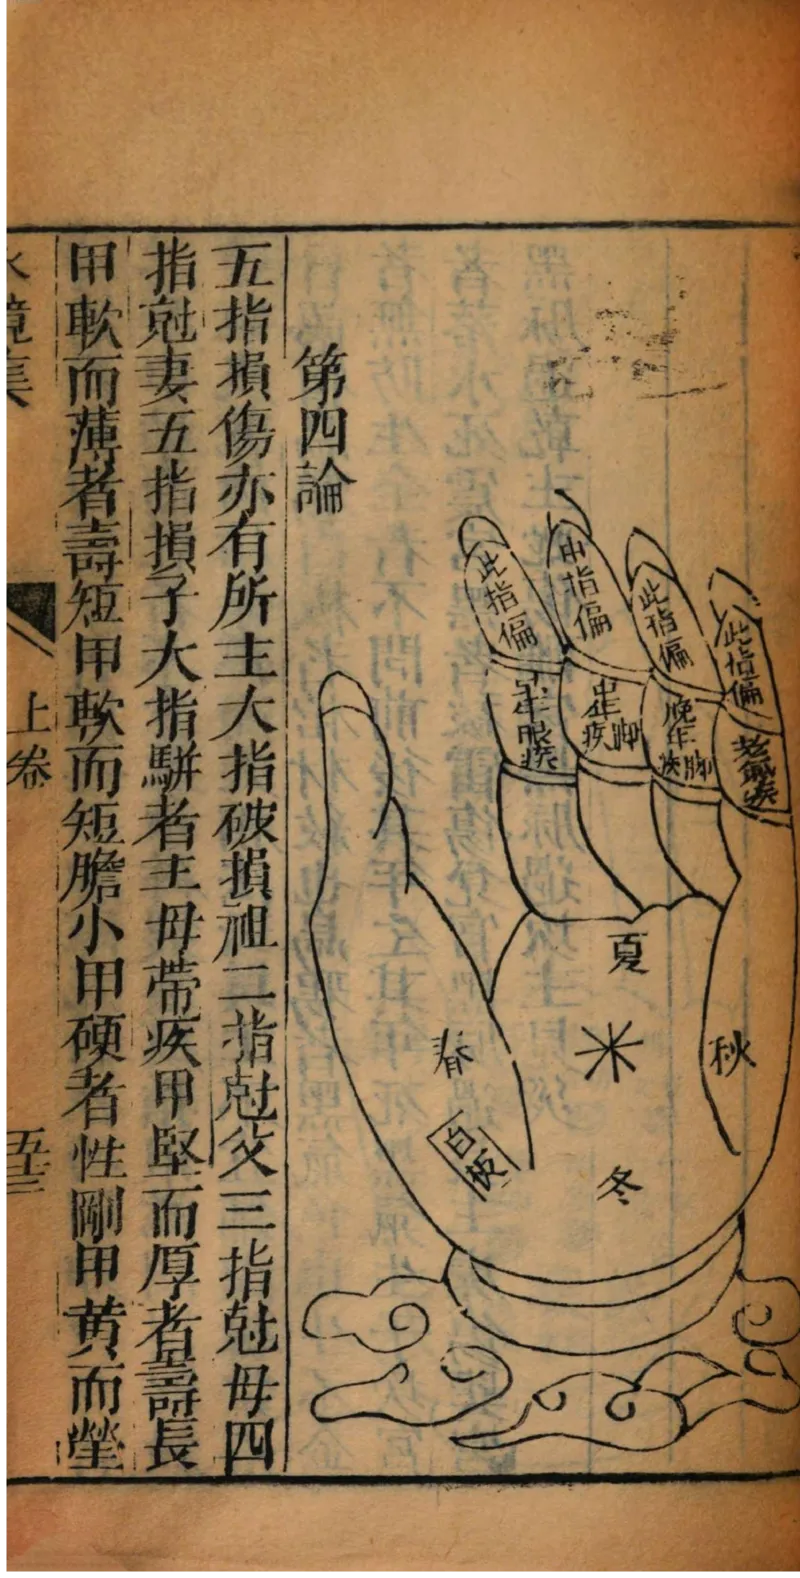 此指偏
老氣疾
此指偏
晚年脚疾
中指偏
中年脚疾
此指偏
中年眼疾
夏
秋
春
冬
白板
第四論
五指損傷亦有所主大指破損祖二指尅父三指尅母四
指尅妻五指損子大指駢者主母帶疾甲堅而厚者壽長
甲軟而薄者壽短甲軟而短膽小甲硬者性剛甲黄而瑩
水鏡集
上卷
五十三